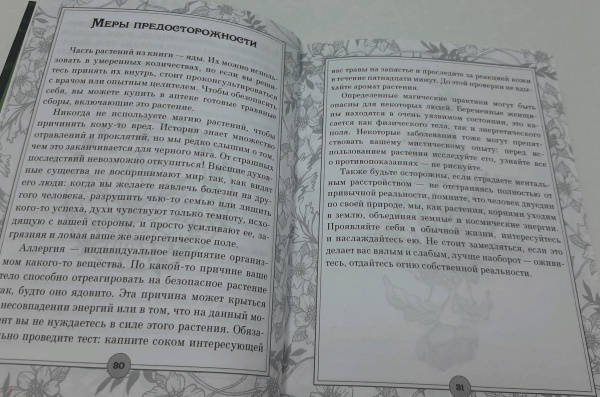 Меры предосторожности
Часть растений из книги — яды. Их можно исполь-
зовать в умеренных количествах, но если вы реши-
тесь принять их внутрь, стоит проконсультироваться
с врачом или опытным целителем. Чтобы обезопасить
себя, вы можете купить в аптеке готовые травяные
сборы, включающие это растение.
Никогда не используйте магию растений, чтобы
причинить кому-то вред. История знает множество
отравлений и проклятий, но мы редко слышим о том,
чем это заканчивается для черного мага. От страшных
последствий невозможно откупиться! Высшие духов-
ные существа не воспринимают мир так, как видят
его люди: когда вы желаете навлечь болезни на дру-
гого человека, разрушить чью-то семью или лишить
кого-то успеха, духи чувствуют только темноту, исхо-
дящую с вашей стороны, и просто усиливают ее, за-
грязняя и ломая ваше же энергетическое поле.
Аллергия — индивидуальное неприятие организ-
мом какого-то вещества. По какой-то причине ваше
тело способно отреагировать на безопасное растение
так, будто оно ядовито. Эта причина может крыться
несовпадении энергий или в том, что на данный мо-
ент вы не нуждаетесь в силе этого растения. Обяза-
льно проведите тест: капните соком интересующей
80
вас травы на запястье и проследите за реакцией кожи
в течение пятнадцати минут. До этой проверки не вды-
хайте аромат растения.
Определенные магические практики могут быть
опасны для некоторых людей. Беременные женщи-
ны находятся в очень уязвимом состоянии, это ка-
сается как физического тела, так и энергетического
поля. Некоторые заболевания тоже могут препят-
ствовать вашему мистическому опыту: перед ис-
пользованием растения исследуйте его, узнайте все
о противопоказаниях — не рискуйте.
Также будьте осторожны, если страдаете менталь-
ным расстройством — не отстраняясь полностью от
привычной реальности, помните, что человек двуедин
по своей природе, мы, как растения, корнями уходим
в землю, объединяя земные и космические энергии.
Проявляйте себя в обычной жизни, интересуйтесь
и наслаждайтесь ею. Не стоит замедляться, если это
делает вас вялым и слабым, лучше наоборот — оживи-
тесь, отдайтесь огню собственной реальности.
81